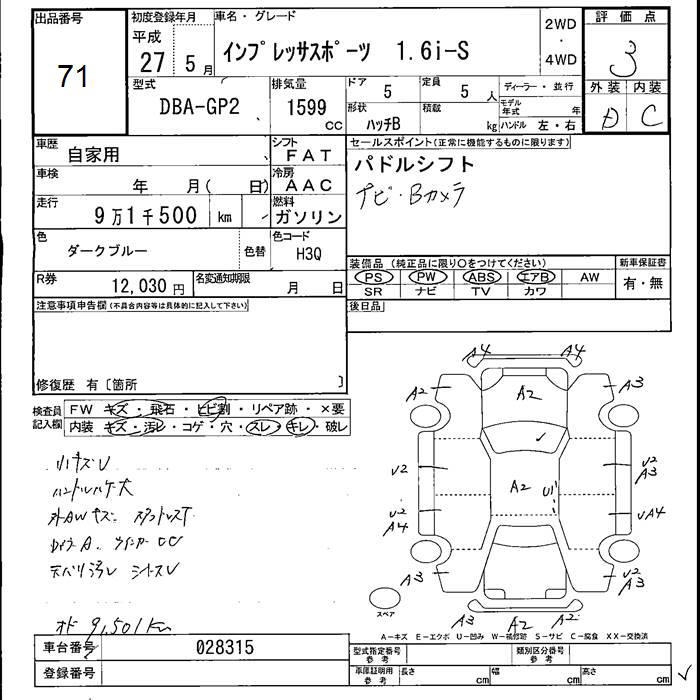 出品番号 初度登録年月 車名・グレード 2WD・4WD 評価点
71 平成27 5月 インプレッサスポーツ 1.6i-S 3
型式 排気量 ドア 5 定員 5人 ディーラー・並行 外装 内装
DBA-GP2 1599cc 形状 ハッチB 積載 kg モデル年式 年 ハンドル 左・右 D C
車歴 自家用 シフト FAT セールスポイント(正常に機能するものに限ります)
車検 年 月( 日) 冷房 AAC パドルシフト
走行 9万1千500 km 燃料 ガソリン ナビ・Bカメラ
色 ダークブルー 色替 色コード H3Q
装備品(純正品に限り〇をつけてください) 新車保証書
R券 12,030円 名変通知期限 月 日 PS PW ABS エアB AW 有・無
SR ナビ TV カワ
注意事項申告欄(不具合内容等は具体的に記入して下さい) 後日品
修復歴 有〔箇所 〕
検査員記入欄 FW キズ・飛石・ヒビ割・リペア跡・×要
内装 キズ・汚レ・コゲ・穴・スレ・キレ・破レ
A4 A4
A2 A2 A3
U2 A2 U1 U2 A3
U2 A4 UA4
A3 U2 A3
スペア
A3 A2 A2
A-キズ E-エクボ U-凹み W-補修跡 S-サビ C-腐食 XX-交換済
車台番号 028315 型式指定番号 参考 類別区分番号 参考
登録番号 車庫証明用 参考 長さ cm 幅 cm 高さ cm